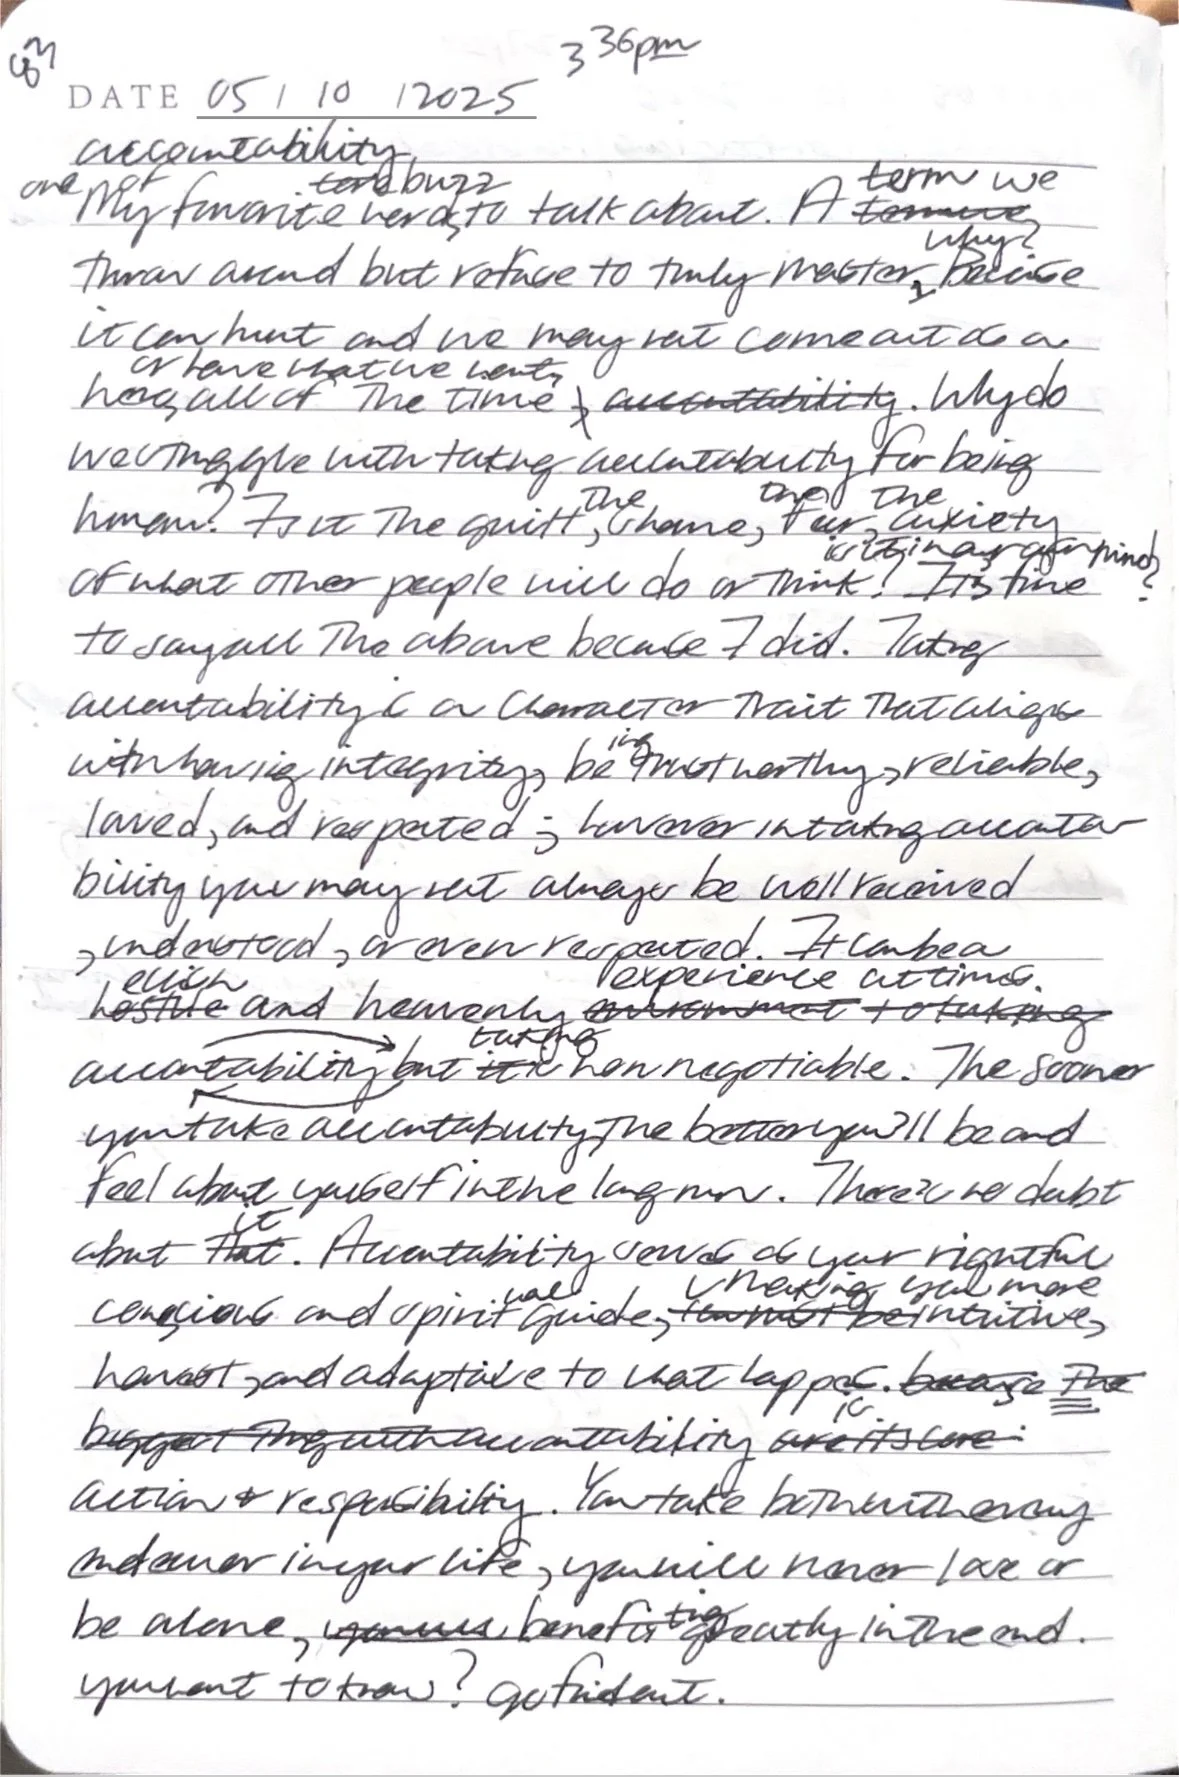 83
3 36pm
DATE 05 / 10 / 2025
accountability,
one of buzz term we
My favorite words, to talk about. A
why?
throw around but refuse to truly master, Because
it can hurt and we may not come out as a
or have what we want,
hero, all of The time, accountability. Why do
we struggle with taking accountability for being
the the the
human? Is it The guilt, Shame, Fear, anxiety
is it in our own mind?
of what other people will do or Think? It's fine
to say all The above because I did. Taking
accountability is a Character Trait That aligns
ing
with having integrity, be Trustworthy, reliable,
loved, and respected; however in taking accounta
bility you may not always be well received
, understood, or even respected. It can be a
ellish experience at times.
hostile and heavenly environment to taking
taking
accountability but it is non negotiable. The sooner
you take accountability, The better you'll be and
feel about yourself in the long run. There's no doubt
it
about That. Accountability serves as your rightful
ual making you more
conscious and spirit guide, intuitive,
honest, and adaptive to what happens. because The
is
biggest Thing with accountability are its core:
action & responsibility. You take both with every
endeavor in your life, you will never lose or
ting
be alone, benefit greatly in The end.
you want to know? Go find out.